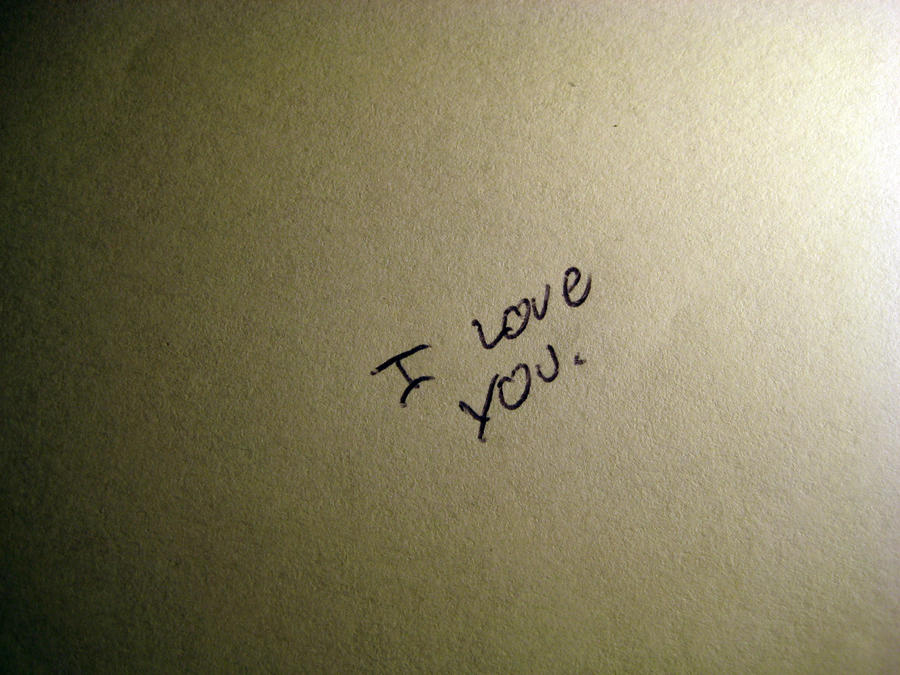 I Love
You.